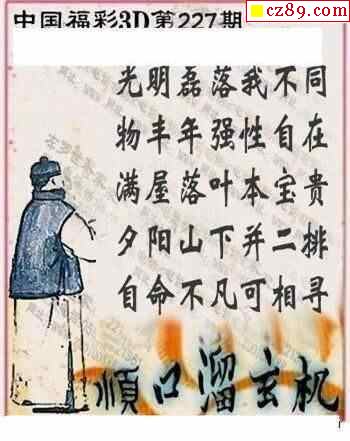 cz89.com
中国福彩3D第227期
光明磊落我不同
物丰年强性自在
满屋落叶本宝贵
夕阳山下并二排
自命不凡可相寻
顺口溜玄机